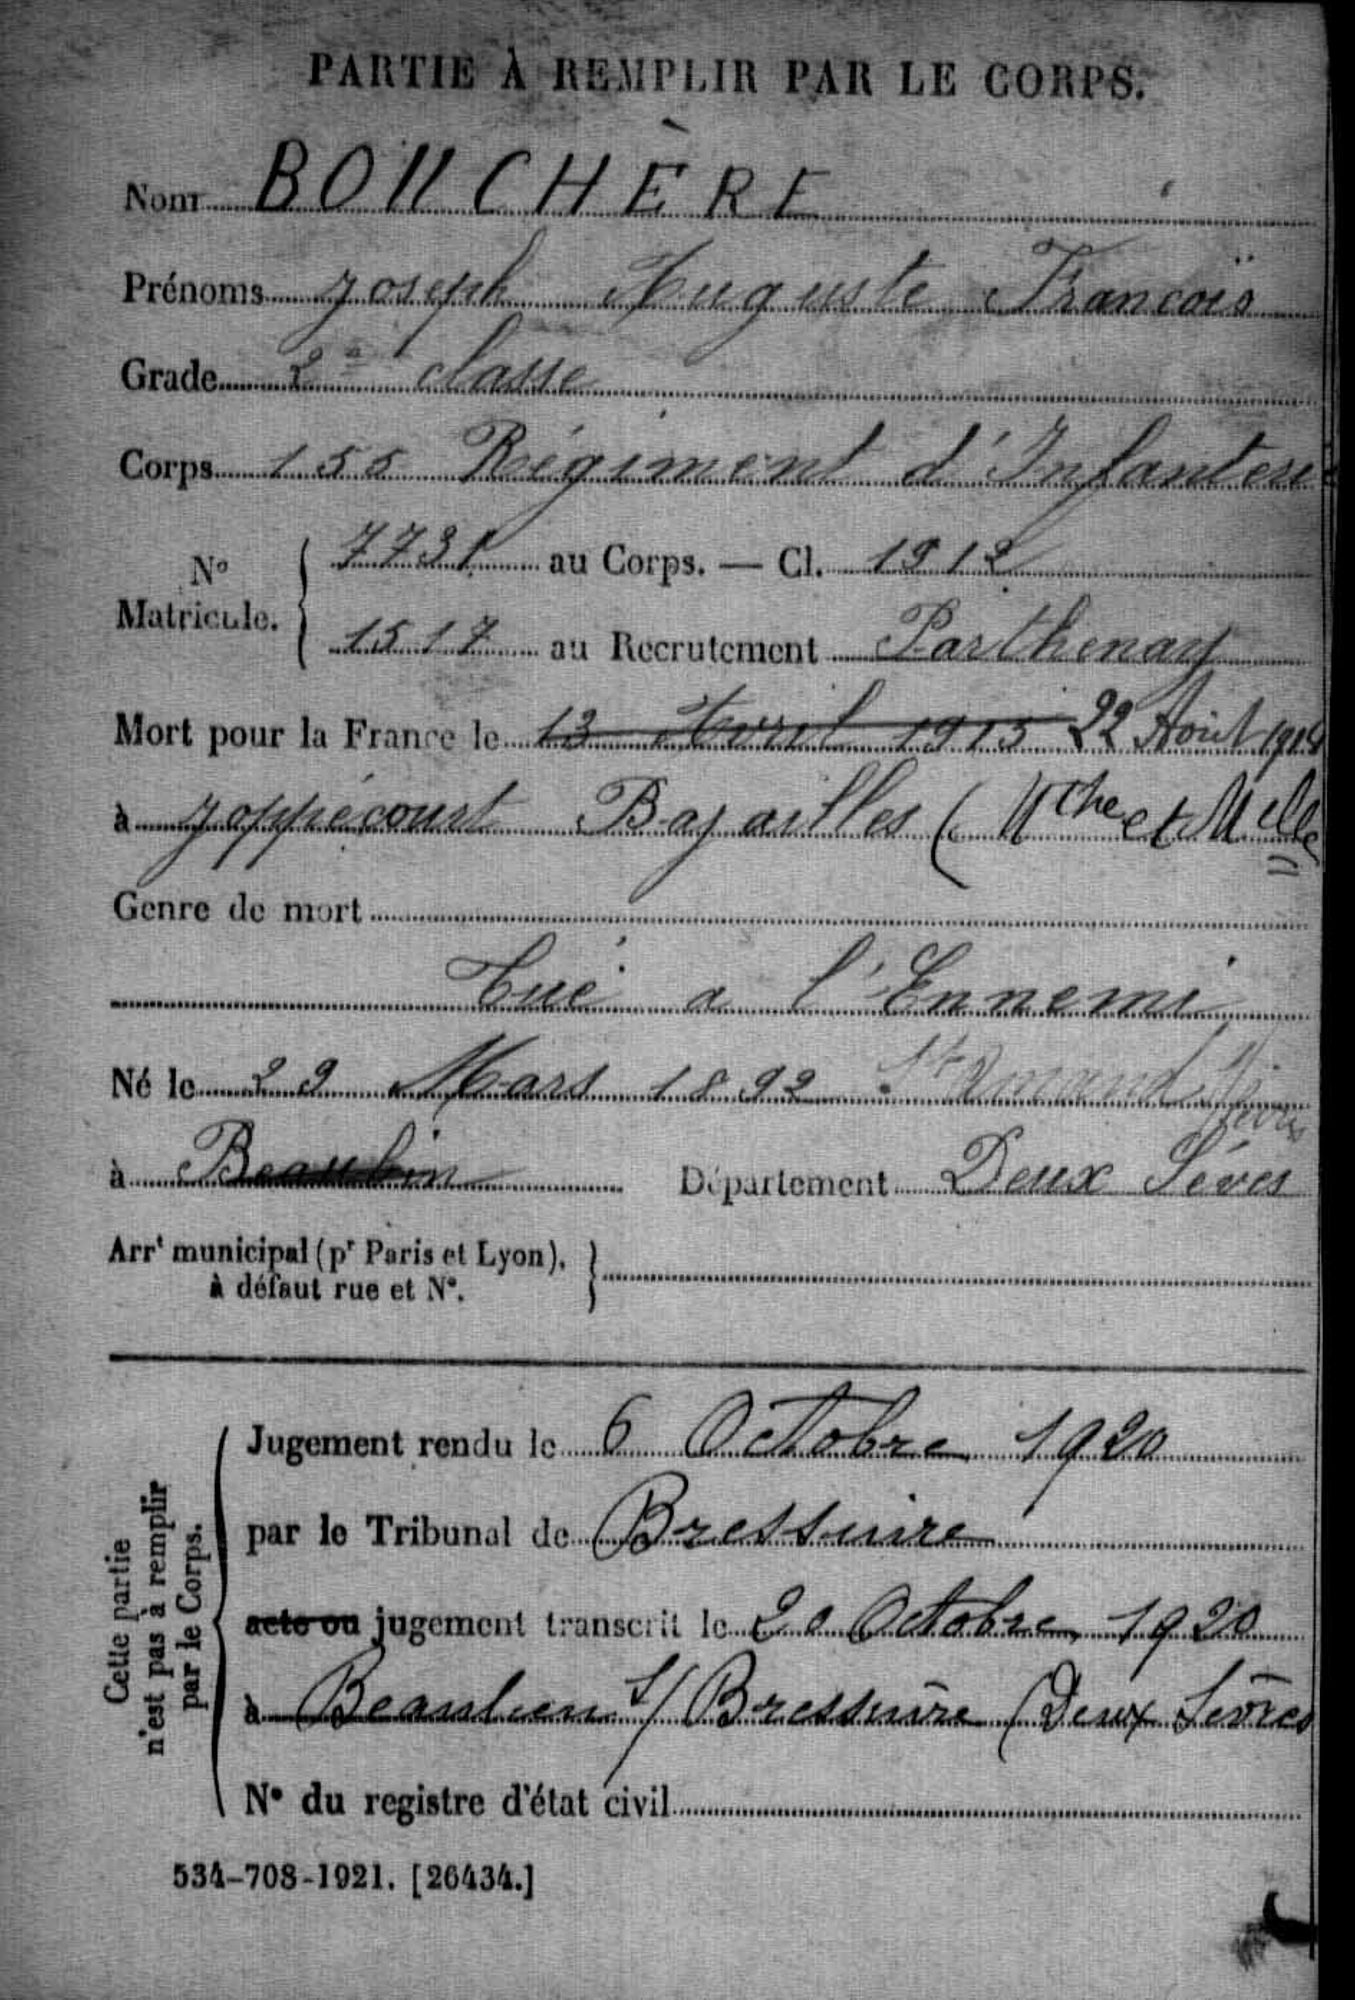 PARTIE À REMPLIR PAR LE CORPS.
Nom BOUCHÈRE
Prénoms Joseph Auguste François
Grade 2e classe
Corps 155 Régiment d'Infanterie
N° Matricule. 7731 au Corps. — Cl. 1912
1517 au Recrutement Parthenay
Mort pour la France le 13 Avril 1915 22 Août 1914
à Joppécourt Bazailles (Mthe et Mlle
Genre de mort
Tué a l'Ennemi
Né le 29 Mars 1892 St Amand
à Beaubin Département Deux Sèves
Arrt municipal (pr Paris et Lyon), à défaut rue et N°.
Cette partie n'est pas à remplir par le Corps.
Jugement rendu le 6 Octobre 1920
par le Tribunal de Bressuire
acte ou jugement transcrit le 20 Octobre 1920
à Beaulieu s/ Bressuire (Deux Sèvres
N° du registre d'état civil
534-708-1921. [26434.]